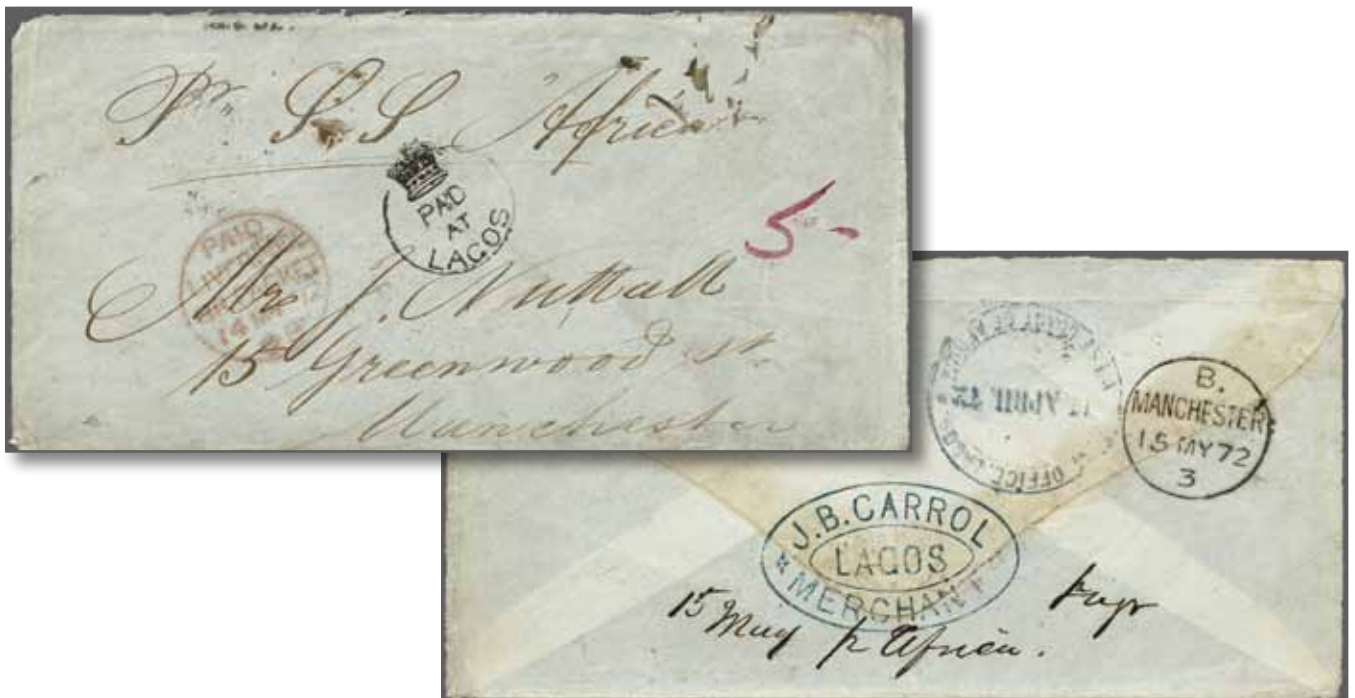 Pr S.S Africa
PAID
AT
LAGOS
5-
PAID
LIVERPOOL
14
Mr J. Nuttall
15 Greenwood St
Manchester
APRIL 72
OFFICE, LAGOS
B.
MANCHESTER
15 MY 72
3
J.B. CARROL
LAGOS
MERCHANT
15 May p Africa.